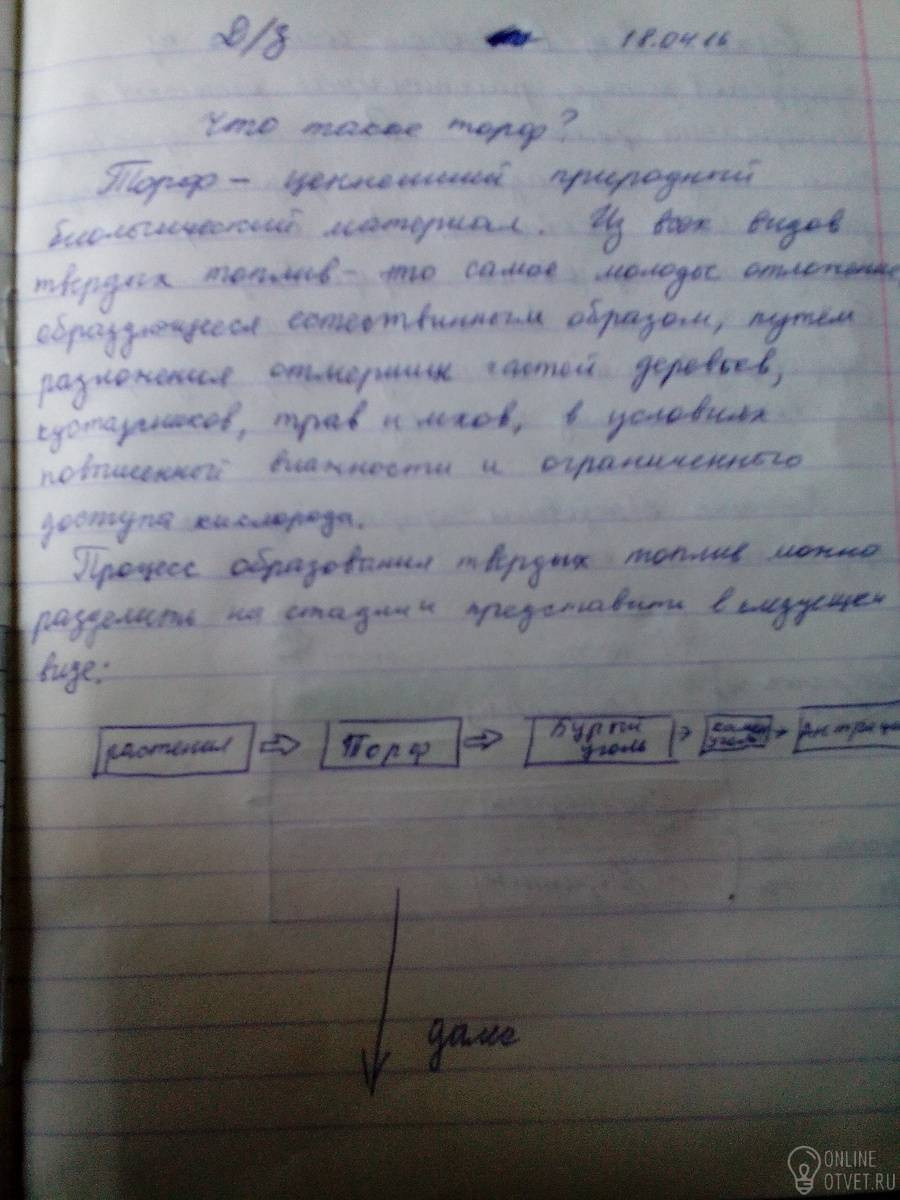 Д/з 18.04.16
Что такое торф?
Торф – ценнейший природный
биологический материал. Из всех видов
твердых топлив – то самое молодые отложение,
образующееся естественным образом, путем
разложения отмерших частей деревьев,
кустарников, трав и мхов, в условиях
повышенной влажности и ограниченного
доступа кислорода.
Процесс образования твердых топлив можно
разделить на стадии и представить в следующем
виде:
растения ⇨ Торф ⇨ Бурый уголь → камен уголь → антраци
далее
ONLINE
OTVET.RU